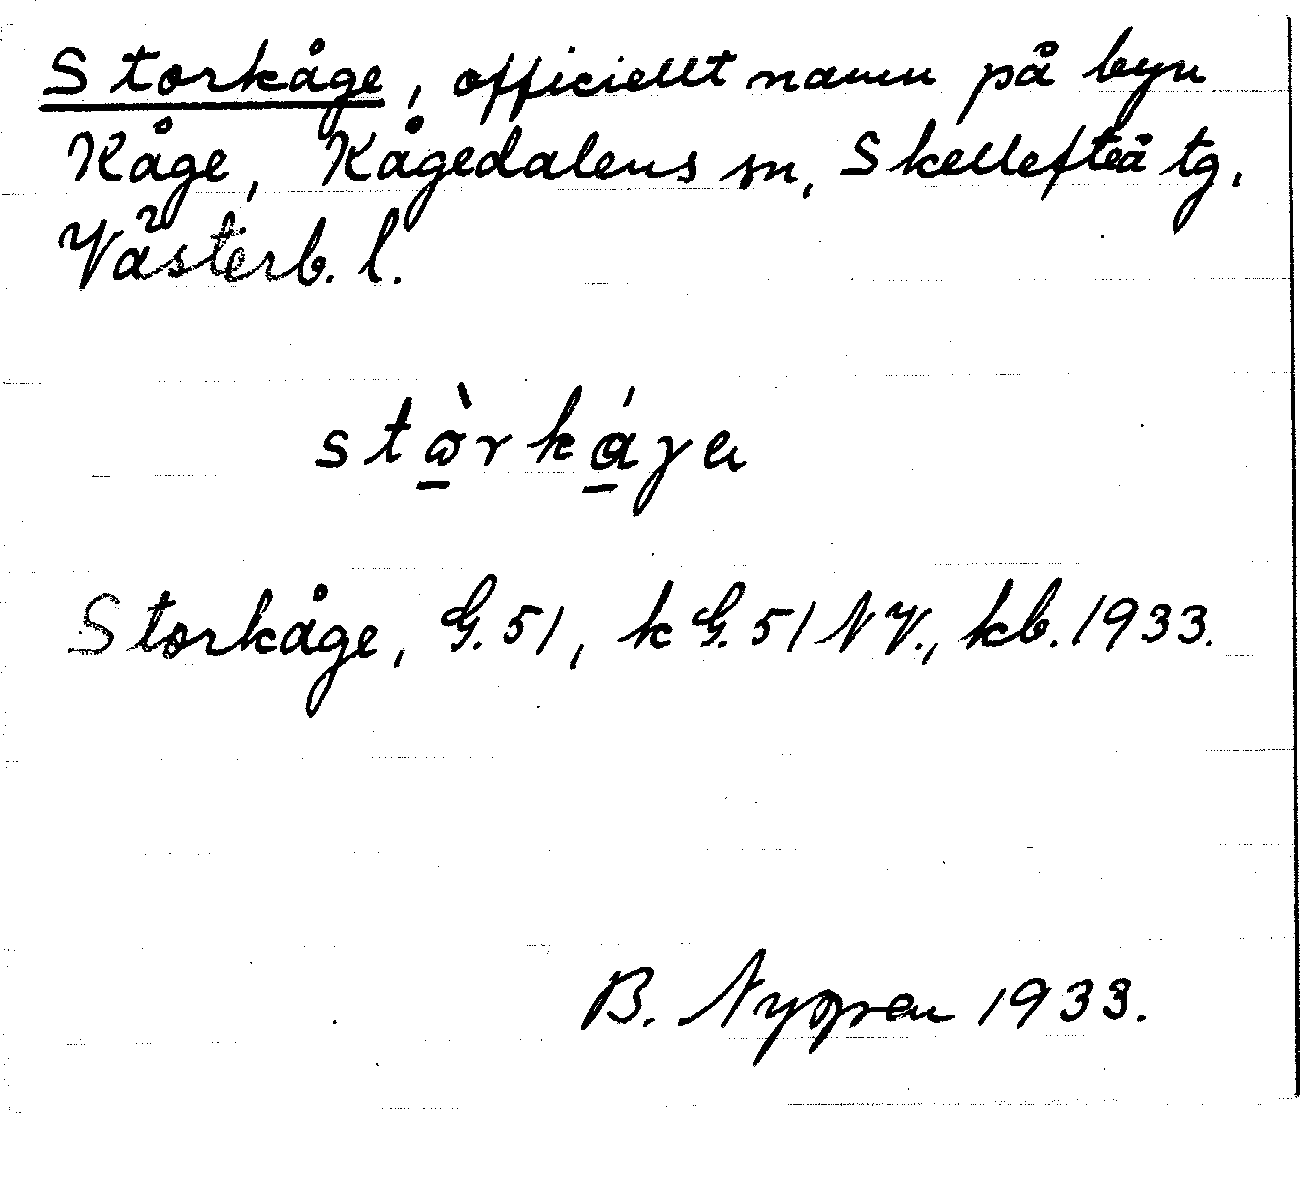 Storkåge, officiellt namn på byn
Kåge, Kågedalens sn, Skellefteå tg,
Västerb. l.
Storkåge, G.51, k G.51 NV., kb. 1933.
B. 1933.